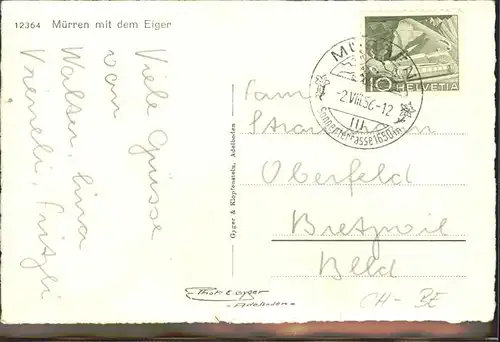 12364 Mürren mit dem Eiger
Viele Grüsse
von
Walser, Lina
Vreneli, Fritzli
Gyger & Klopfenstein, Adelboden
Phot. E. Gyger
Adelboden
10 HELVETIA
MÜRREN
-2.VIII.56-12
Sonnenterrasse 1650 m.
Fam
Oberfeld
Bretzwil
Blld
CH-BE